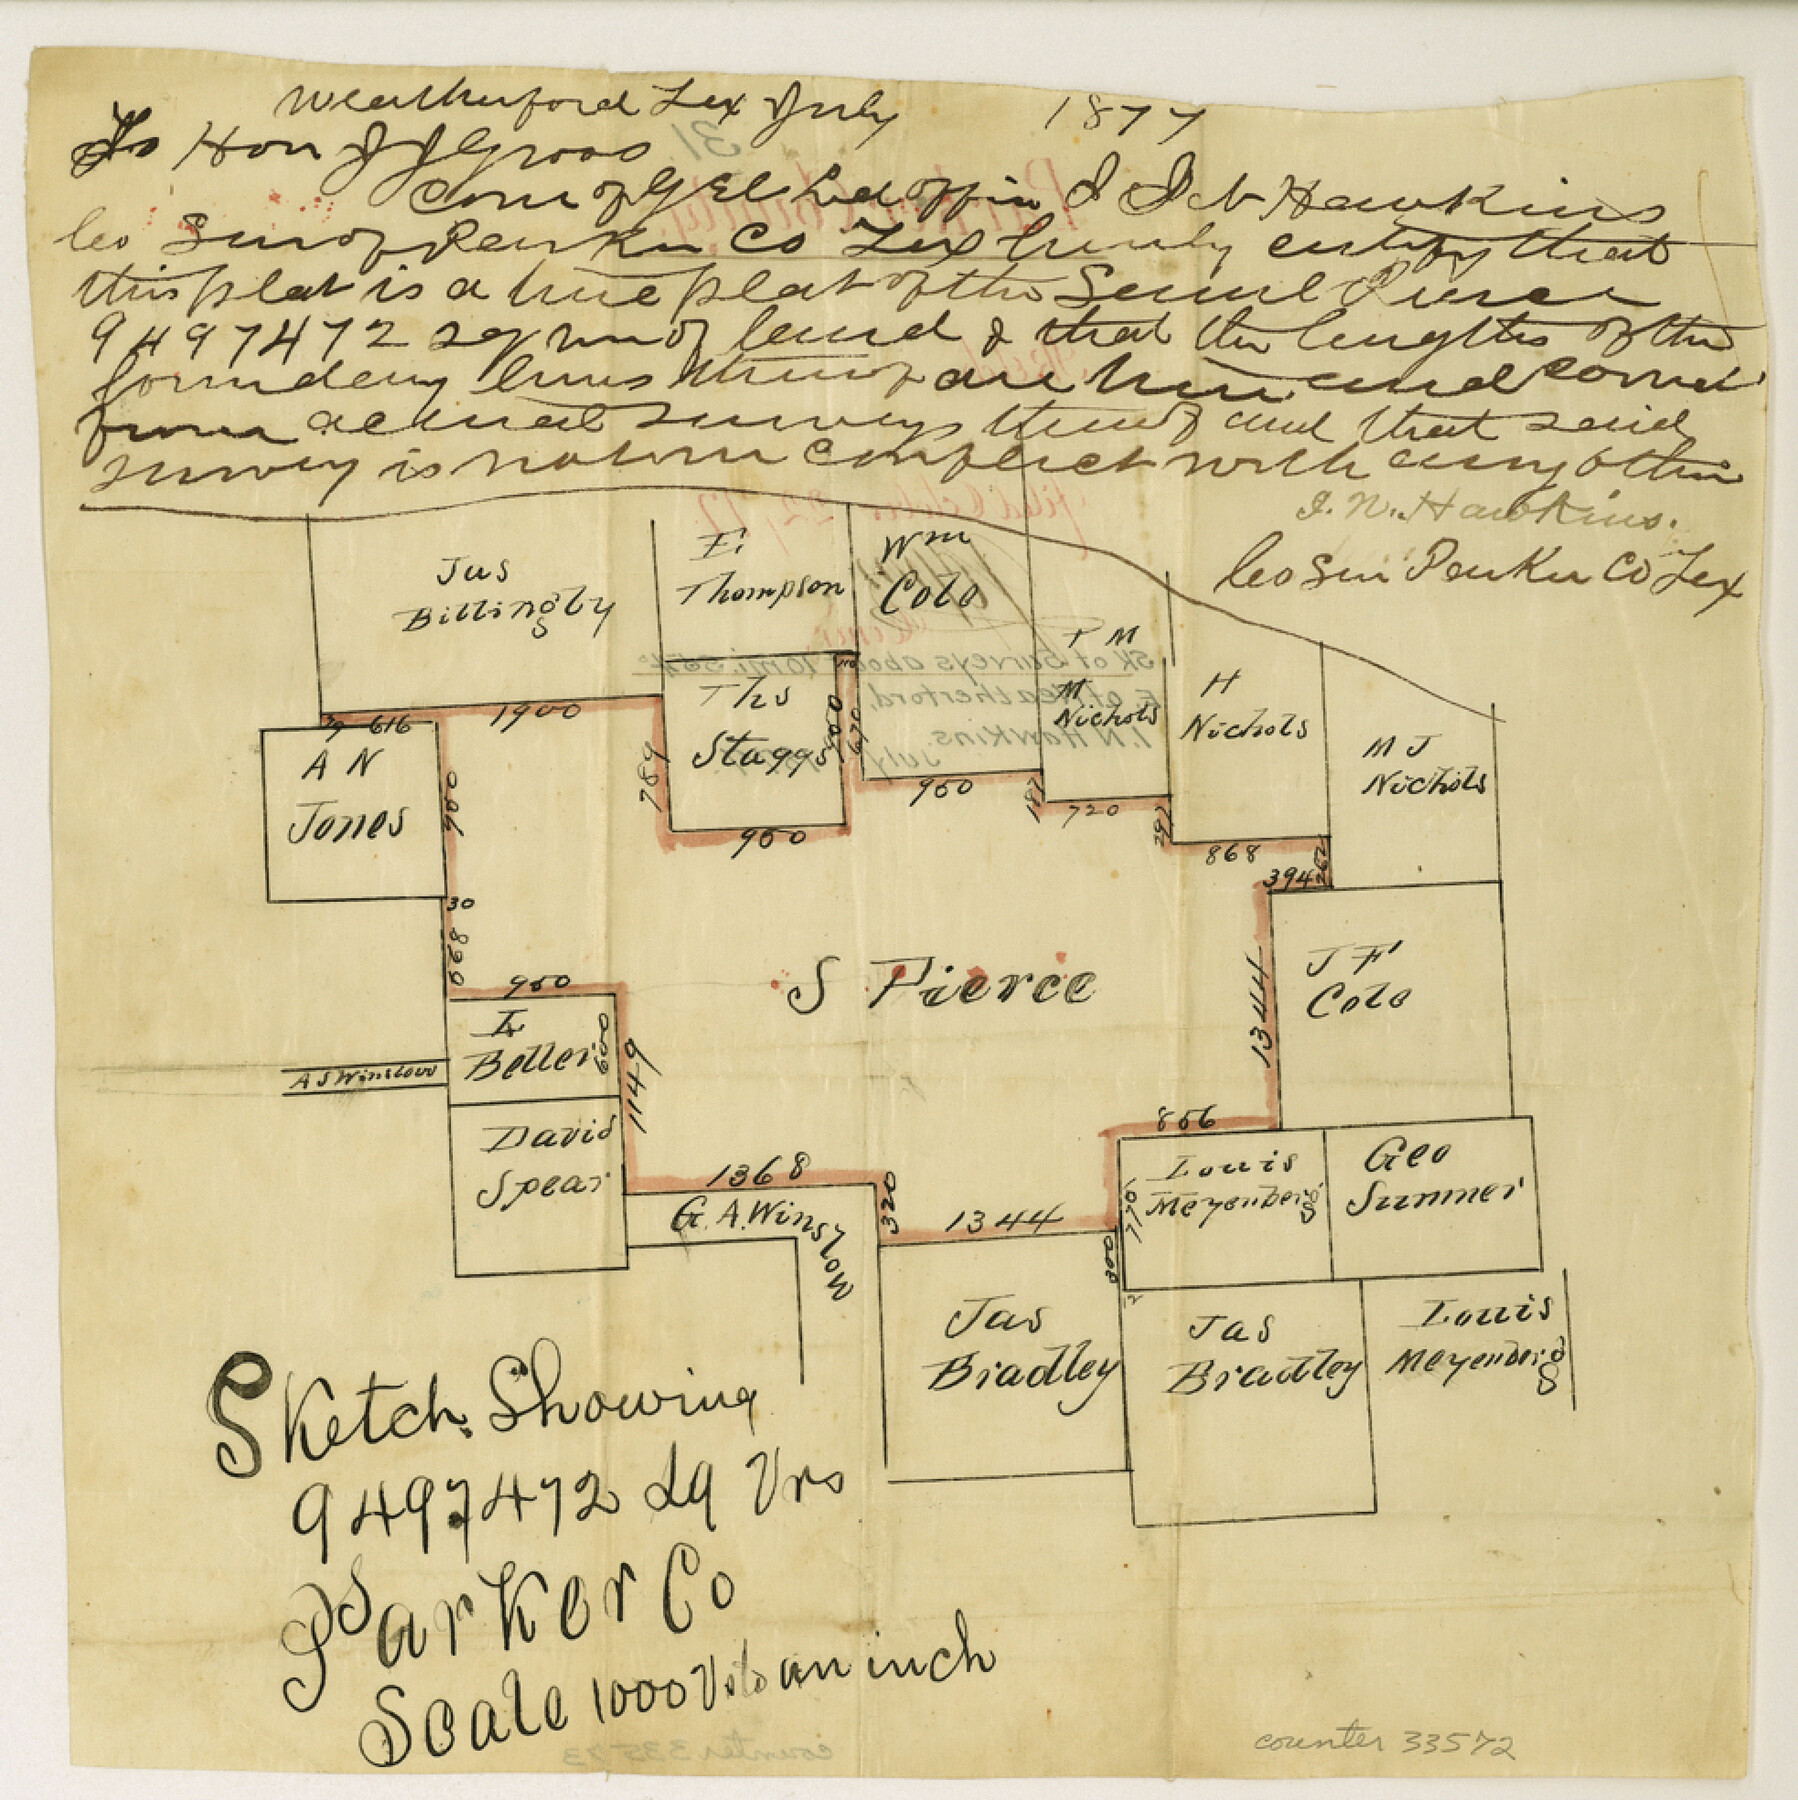 Weatherford Tex July 1877
To Hon J J Groos
Com of Genl Land office I I N Hawkins
Co Sur of Parker Co Tex hereby certify that
this plat is a true plat of the Pierce
9497472 sq vrs of land & that the lengths of the
boundary lines thereof are true and correct
from actual surveys thereof and that said
survey is not in conflict with any other
I. N. Hawkins.
Co Sur Parker Co Tex
Jas
Billingsly
E.
Thompson
Wm
Cole
T M
M
Nichols
H
Nichols
M J
Nichols
Ths
Staggs
616
1900
784
950
670
950
187
720
297
868
262
394
A N
Jones
950
30
890
950
S Pierce
1344
J F
Cole
L
Beller
600
1149
A S Winslow
David
Spear
856
Louis
Meyenberg
770
Geo
Summer
1368
320
G. A. Winslow
1344
300
12
Jas
Bradley
Jas
Bradley
Louis
Meyenberg
Sketch Showing
9497472 Sq Vrs
Parker Co
Scale 1000 Vs to an inch
counter 33572
counter 33573
31
Filed October 22, 77
Sk of Surveys about 10 mi. S 57 E
E of Weatherford,
I. N Hawkins.
July